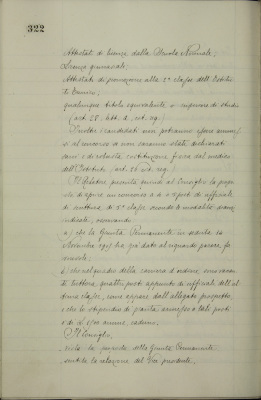 322
Attestato di licenza dalla Scuola Normale;
Licenza ginnasiale;
Attestato di promozione alla 2ª classe dell'Istituto
Tecnico;
qualunque titolo equivalente o superiore di studi
(art. 28. lett. d. cit. reg.)
Inoltre i candidati non potranno essere ammessi
al concorso se non saranno stati dichiarati
sani e di robusta costituzione fisica dal medico
dell'Istituto (art. 26 cit. reg.)
Il Relatore pertanto al Consiglio la
di aprire un concorso a posti di ufficiale
di scrittura di 2ª classe secondo le modalità
indicate, ritenendo
a) che la Giunta Permanente in seduta 10
Novembre ha già dato al riguardo parere fa-
vorevole;
b) che nel quadro della carriera d'ordine, sono vacan-
ti tuttora quattro posti appunto di ufficiale dell'ul-
tima classe, come appare dall'allegato prospetto,
c) che lo stipendio di pianta annesso a tali posti
è di L. annue, cadauno.
Il Consiglio,
visto il parere della Giunta Permanente
sentita la relazione del Presidente,